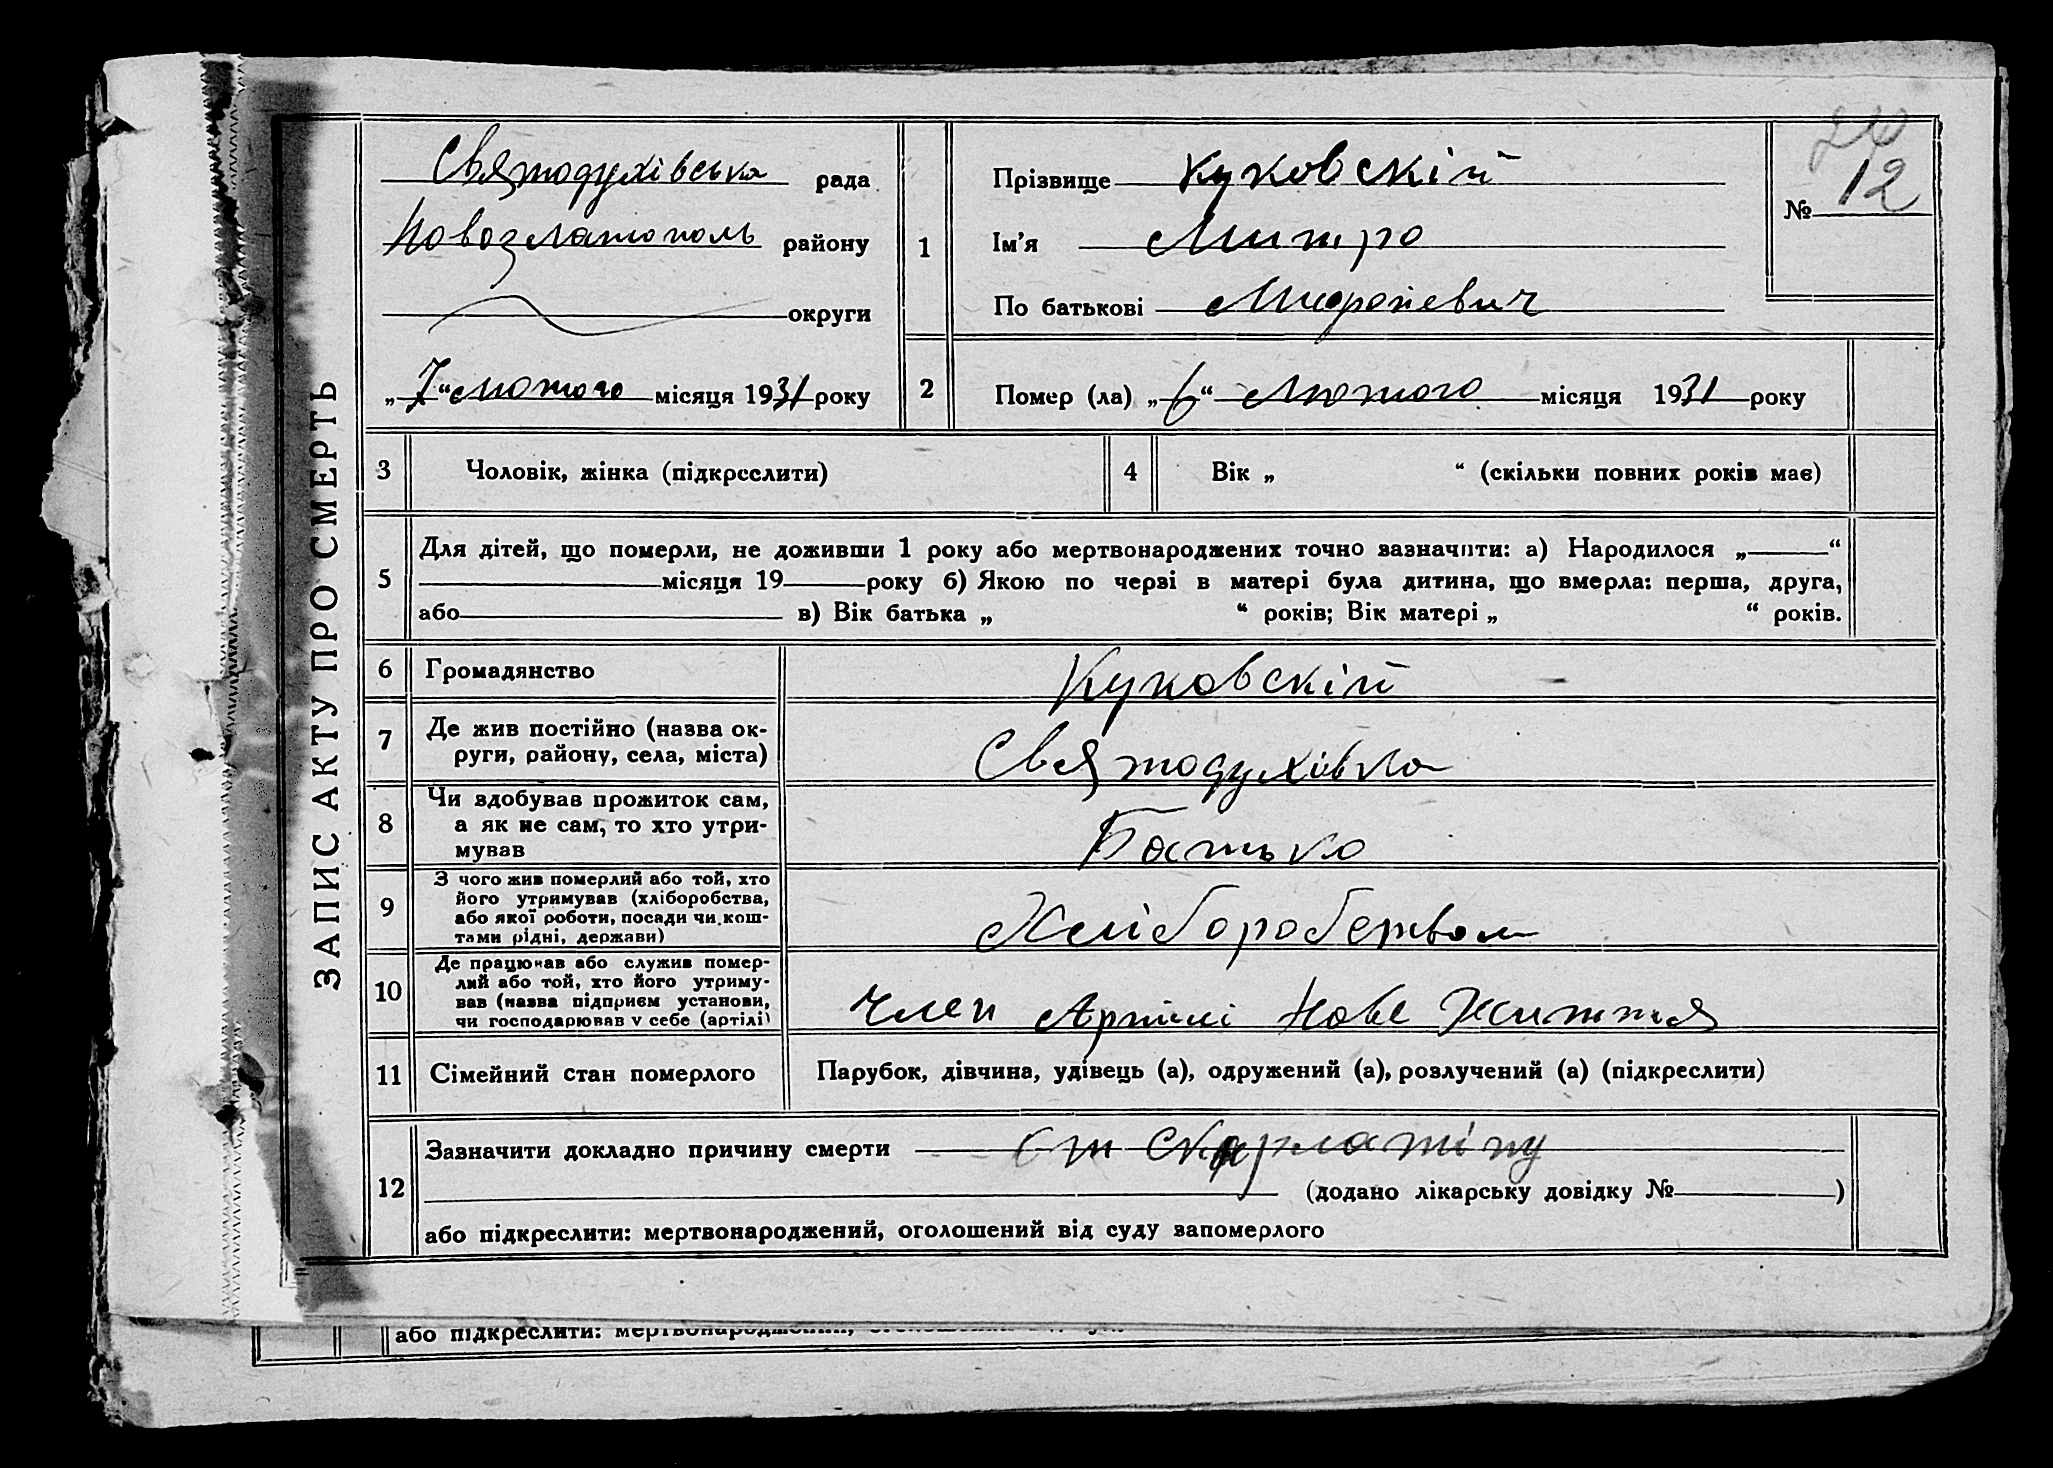 ЗАПИС АКТУ ПРО СМЕРТЬ
Святодухівська рада
Новозлатополь району
округи
„7“ лютого місяця 1931 року
1
Прізвище Куковскій
Ім’я Митро
По батькові
24
№ 12
2
Помер (ла) „6“ лютого місяця 1931 року
3
Чоловік, жінка (підкреслити)
4
Вік „ “ (скільки повних років має)
5
Для дітей, що померли, не доживши 1 року або мертвонароджених точно зазначити: а) Народилося „ “
місяця 19 року б) Якою по черві в матері була дитина, що вмерла: перша, друга,
або в) Вік батька „ “ років; Вік матері „ “ років.
6
Громадянство
Куковскій
7
Де жив постійно (назва ок-
руги, району, села, міста)
Святодухівка
8
Чи здобував прожиток сам,
а як не сам, то хто утри-
мував
Батько
9
З чого жив померлий або той, хто
його утримував (хліборобства,
або якої роботи, посади чи кош-
тами рідні, держави)
Хліборобством
10
Де працював або служив помер-
лий або той, хто його утриму-
вав (назва підприєм установи,
чи господарював у себе (артілі)
Член Артілі Нове Життя
11
Сімейний стан померлого
Парубок, дівчина, удівець (а), одружений (а), розлучений (а) (підкреслити)
12
Зазначити докладно причину смерти от скарлатіну
(додано лікарську довідку № )
або підкреслити: мертвонароджений, оголошений від суду запомерлого
або підкреслити: